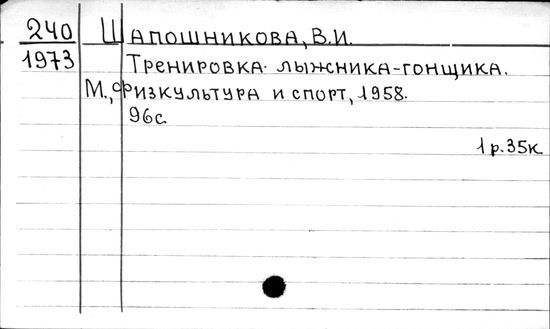 240 Шапошникова, В.И.
1973 Тренировка лыжника-гонщика.
М., Физкультура и спорт, 1958.
96с.
1р.35к.